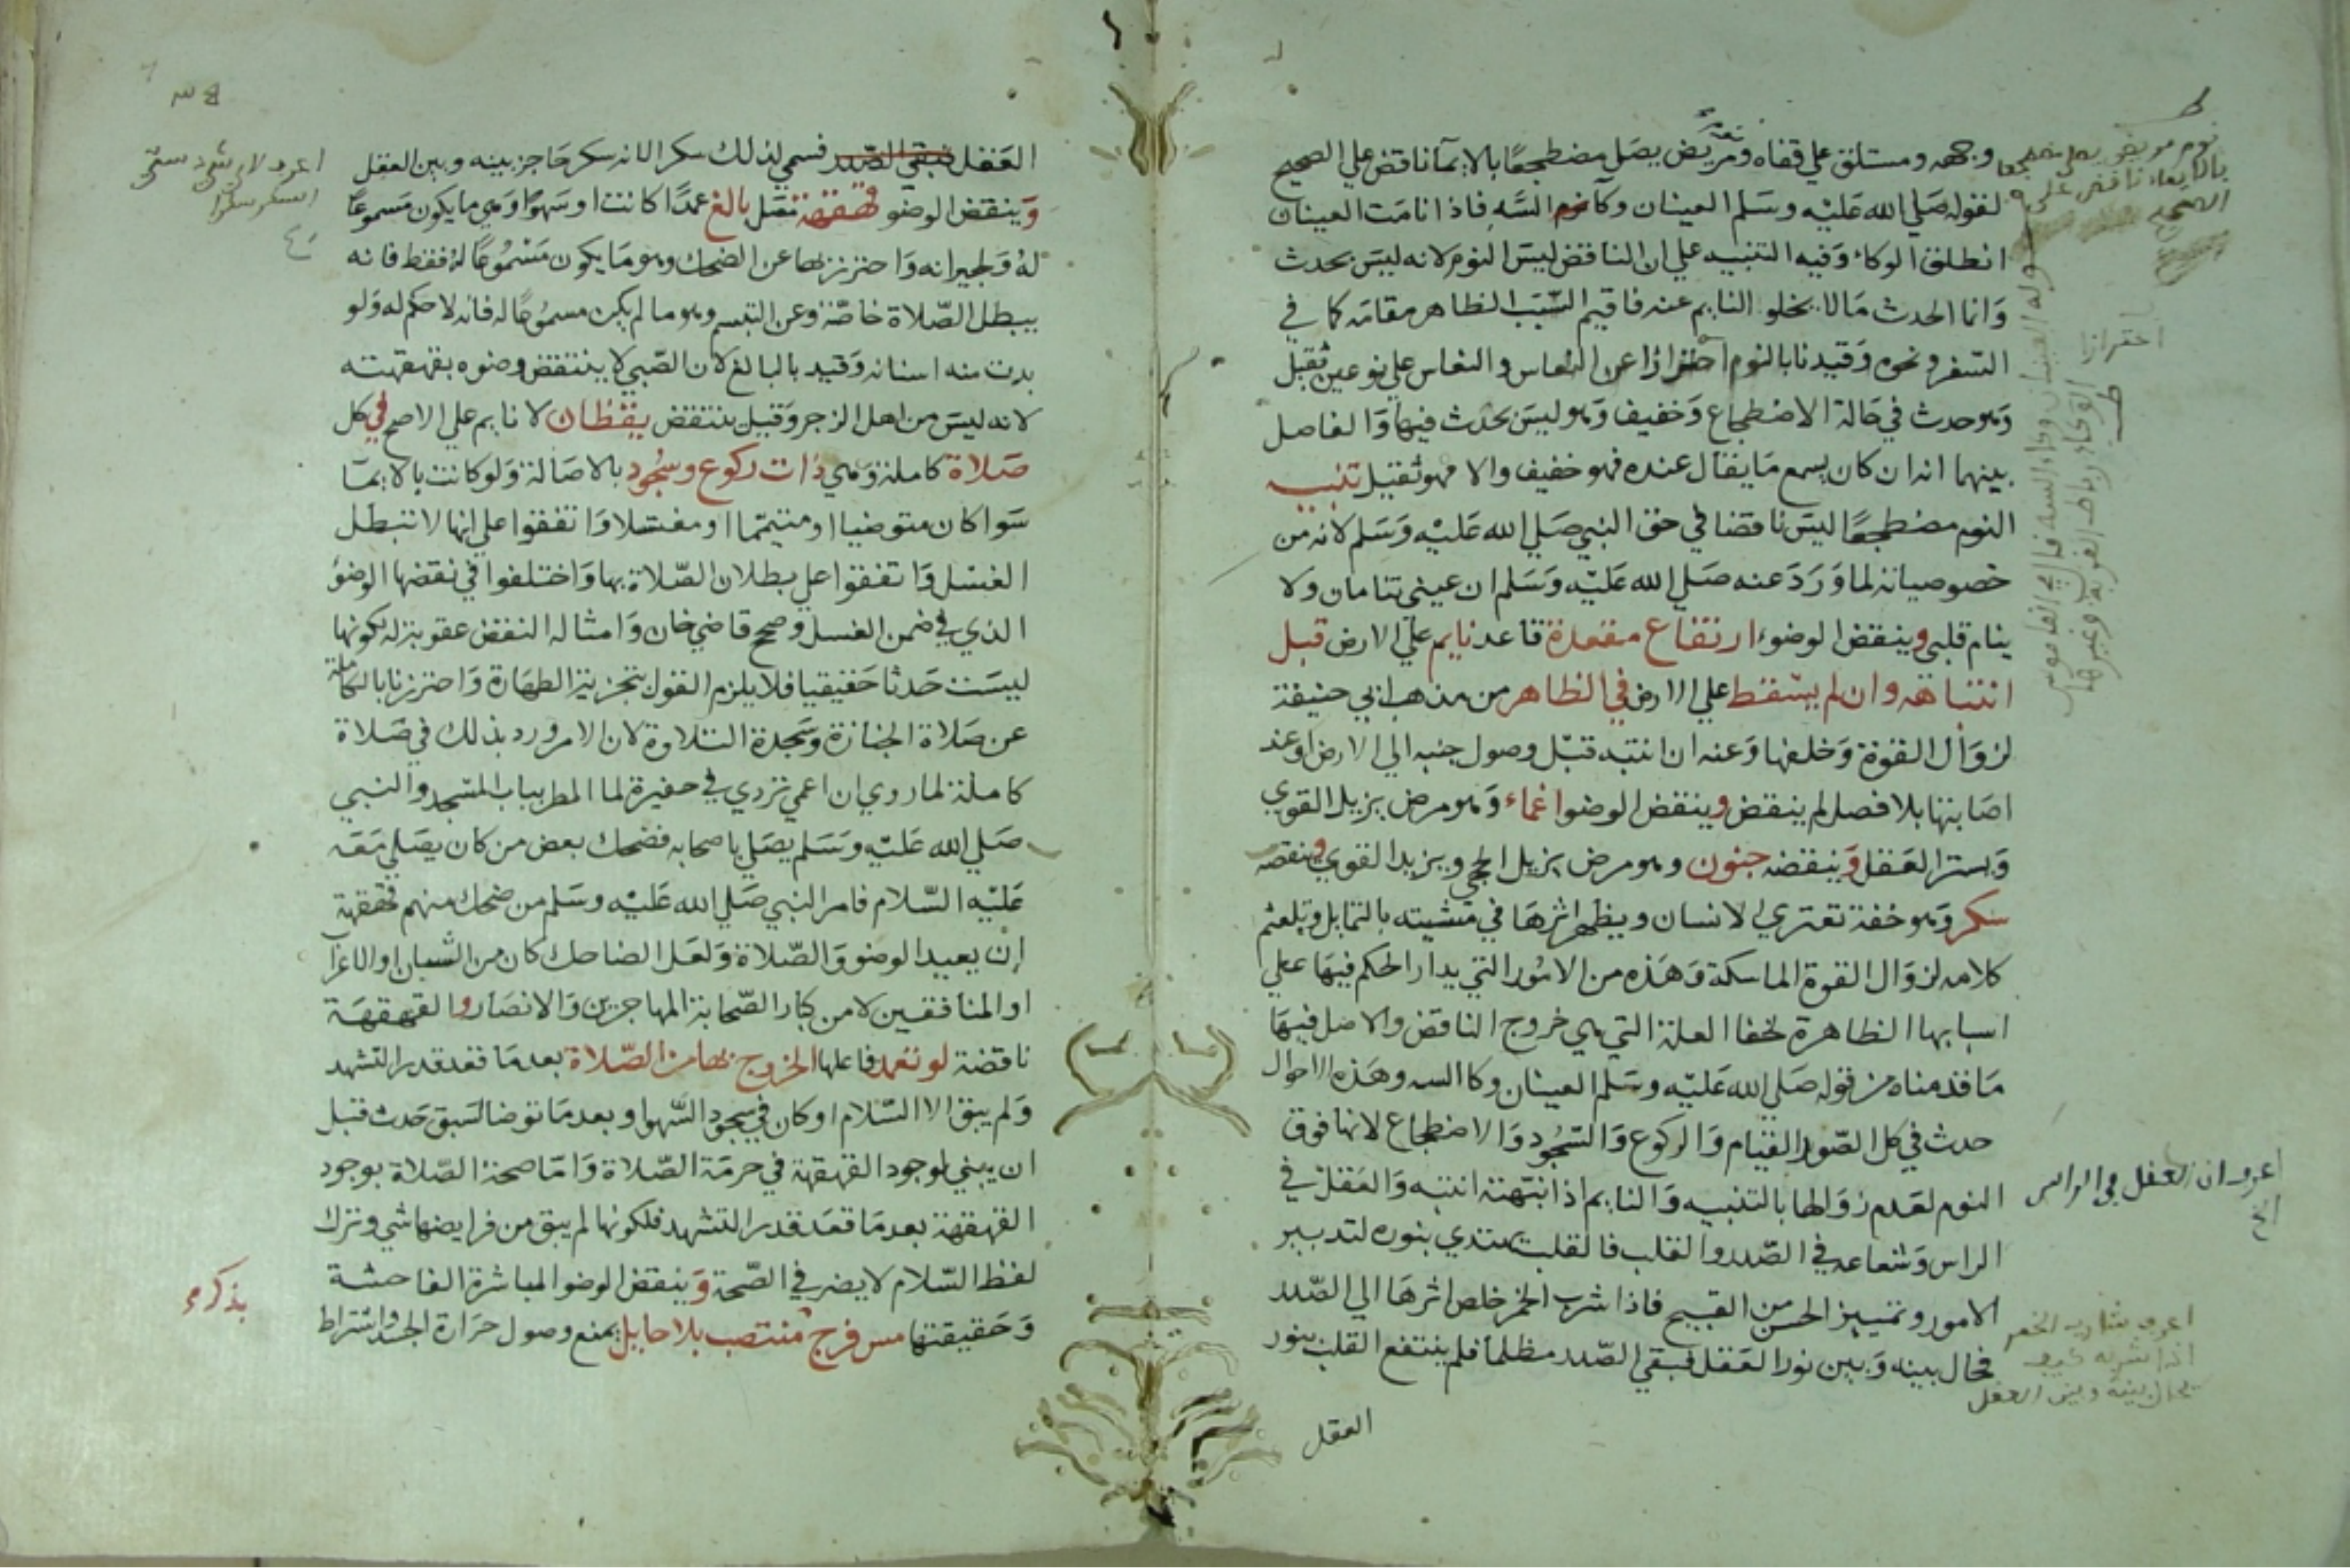 وجهه ومستلق علي قفاه ومريض يصل مضطجعا بالايمآ ناقض علي الصحيح
لقوله صلي الله عليه وسلم العينان وكآ السَّه فاذا نامت العينان
انطلق الوكاء وفيه التنبيه علي ان الناقض ليس النوم لانه ليس بحدث
وانما الحدث مالا يخلو النايم عنه فاقيم السّبب الظاهر مقامه كما في
السفر ونحوه وقيدنا بالنوم احترازا عن النعاس والنعاس علي نوعين ثقيل
وهو حدث في حالة الاضطجاع وخفيف وهو ليس بحدث فيها والفاصل
بينهما انه ان كان يسمع ما يقال عنده فهو خفيف والا فهو ثقيل تنبيه
النوم مضطجعًا ليس ناقضا في حق النبي صلي الله عليه وسلم لانه من
خصوصياته لما ورد عنه صلي الله عليه وسلم ان عيني تنامان ولا
ينام قلبي وينقض الوضوء ارتفاع مقعدة قاعد نايم علي الارض قبل
انتباهه وان لم يسقط علي الارض في الظاهر من مذهب ابي حنيفة
لزوال القوة وخلفها وعنه ان انتبه قبل وصول جنبه الي الارض او عند
اصابتها بلا فصل لم ينقض وينقض الوضو اغماء وهو مرض يزيل القوي
ويستر العقل وينقضه جنون وهو مرض يزيل الحجي ويزيد القوي وينقضه
سكر وهو خفة تعتري الانسان ويظهر اثرها في مشيته بالتمايل وتلعثم
كلامه لزوال القوة الماسكة وهذه من الامور التي يدار الحكم فيها علي
اسبابها الظاهرة لخفا العلة التي هي خروج الناقض والاصل فيها
ما قدمناه من قوله صلي الله عليه وسلم العينان وكا السه وهذه الاحوال
حدث في كل الصّور القيام والركوع والسّجود والاضطجاع لانها فوق
النوم لعدم زوالها بالتنبيه والنايم اذا نبّهته انتبه والعقل في
الراس وشعاعه في الصّدر والقلب فالقلب يهتدي بنوره لتدبير
الامور وتمييز الحسن من القبيح فاذا شرب الخمر خلص اثرها الي الصّدر
فحال بينه وبين نور العقل فبقي الصّدر مظلما فلم ينتفع القلب بنور
العقل
نوم مريض يصلي مضطجعا
بالايماء ناقض على
الصحيح
احترازا
اعرف ان العقل في الراس
الخ
اعرف شارب الخمر
اذا شربه كيف
يحال بينه وبين العقل
العقل فبقي الصّدر فسمي لذلك سكرا لانه سكر حاجز بينه وبين العقل
وينقض الوضو قهقهة مصل بالغ عمدًا كانت او سهوًا وهي ما يكون مسموعًا
له ولجيرانه واحترز بها عن الضحك وهو ما يكون مسموعًا له فقط فانه
يبطل الصّلاة خاصّة وعن التبسم وهو ما لم يكن مسموعا له فانه لا حكم له ولو
بدت منه اسنانه وقيد بالبالغ لان الصّبي لا ينتقض وضوه بقهقهته
لانه ليس من اهل الزجر وقيل ينتقض يقظان لا نايم علي الاصح في كل
صلاة كاملة وهي ذات ركوع وسجود بالاصالة ولو كانت بالايمآ
سوا كان متوضيا او متيمّما او مغتسلا واتفقوا علي انها لا تبطل
الغسل واتفقوا علي بطلان الصّلاة بها واختلفوا في نقضها الوضوء
الذي في ضمن الغسل وصحح قاضي خان وامثاله النقض عقوبة له لكونها
ليست حدثا حقيقيا فلا يلزم القول بتجزية الطهارة واحترزنا بالكاملة
عن صلاة الجنازة وسجدة التلاوة لان الامر ورد بذلك في صلاة
كاملة لما روي ان اعمي تردي في حفيرة لما المطر بباب المسجد والنبي
صلي الله عليه وسلم يصلي باصحابه فضحك بعض من كان يصلي معه
عليه السّلام فامر النبي صلي الله عليه وسلم من ضحك منهم قهقهة
إن يعيد الوضو والصّلاة ولعل الضاحك كان من الشبان او الاعرا
او المنافقين لا من كبار الصّحابة المهاجرين والانصار والقهقهة
ناقضة لو تعمد فاعلها الخروج بها من الصّلاة بعد ما قعد قدر التشهد
ولم يبق الا السّلام او كان في سجود السّهو او بعد ما توضا لسبق حدث قبل
ان يبني لوجود القهقهة في حرمة الصّلاة وامّا صحة الصّلاة بوجود
القهقهة بعد ما قعد قدر التشهد فلكونها لم يبق من فرايضها شي وترك
لفظ السّلام لا يضر في الصّحة وينقض الوضو المباشرة الفاحشة
وحقيقتها مس فرج منتصب بلا حايل يمنع وصول حرارة الجسد واشتراط
اعرف لاي شي سمّي
السكر سكرا
بذكره